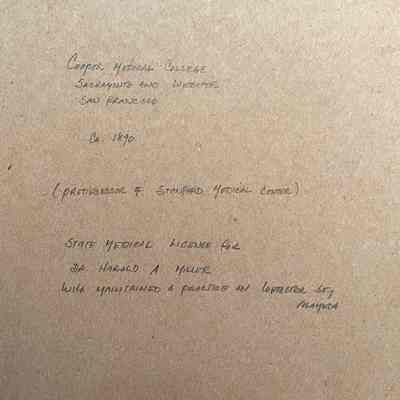 Cooper Medical College
Sacramento and Webster
San Francisco
Ca. 1890
(predecessor of Stanford Medical Center)
State Medical License for
Dr. Harold A Miller
Who maintained a practice on Webster St,